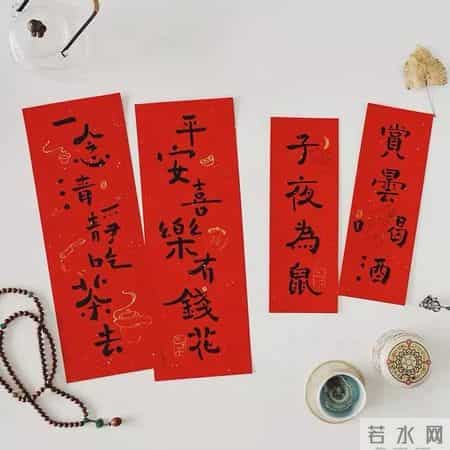 一念清靜吃茶去
平安喜樂有錢花
子夜為鼠
賞曇喝酒
若水网